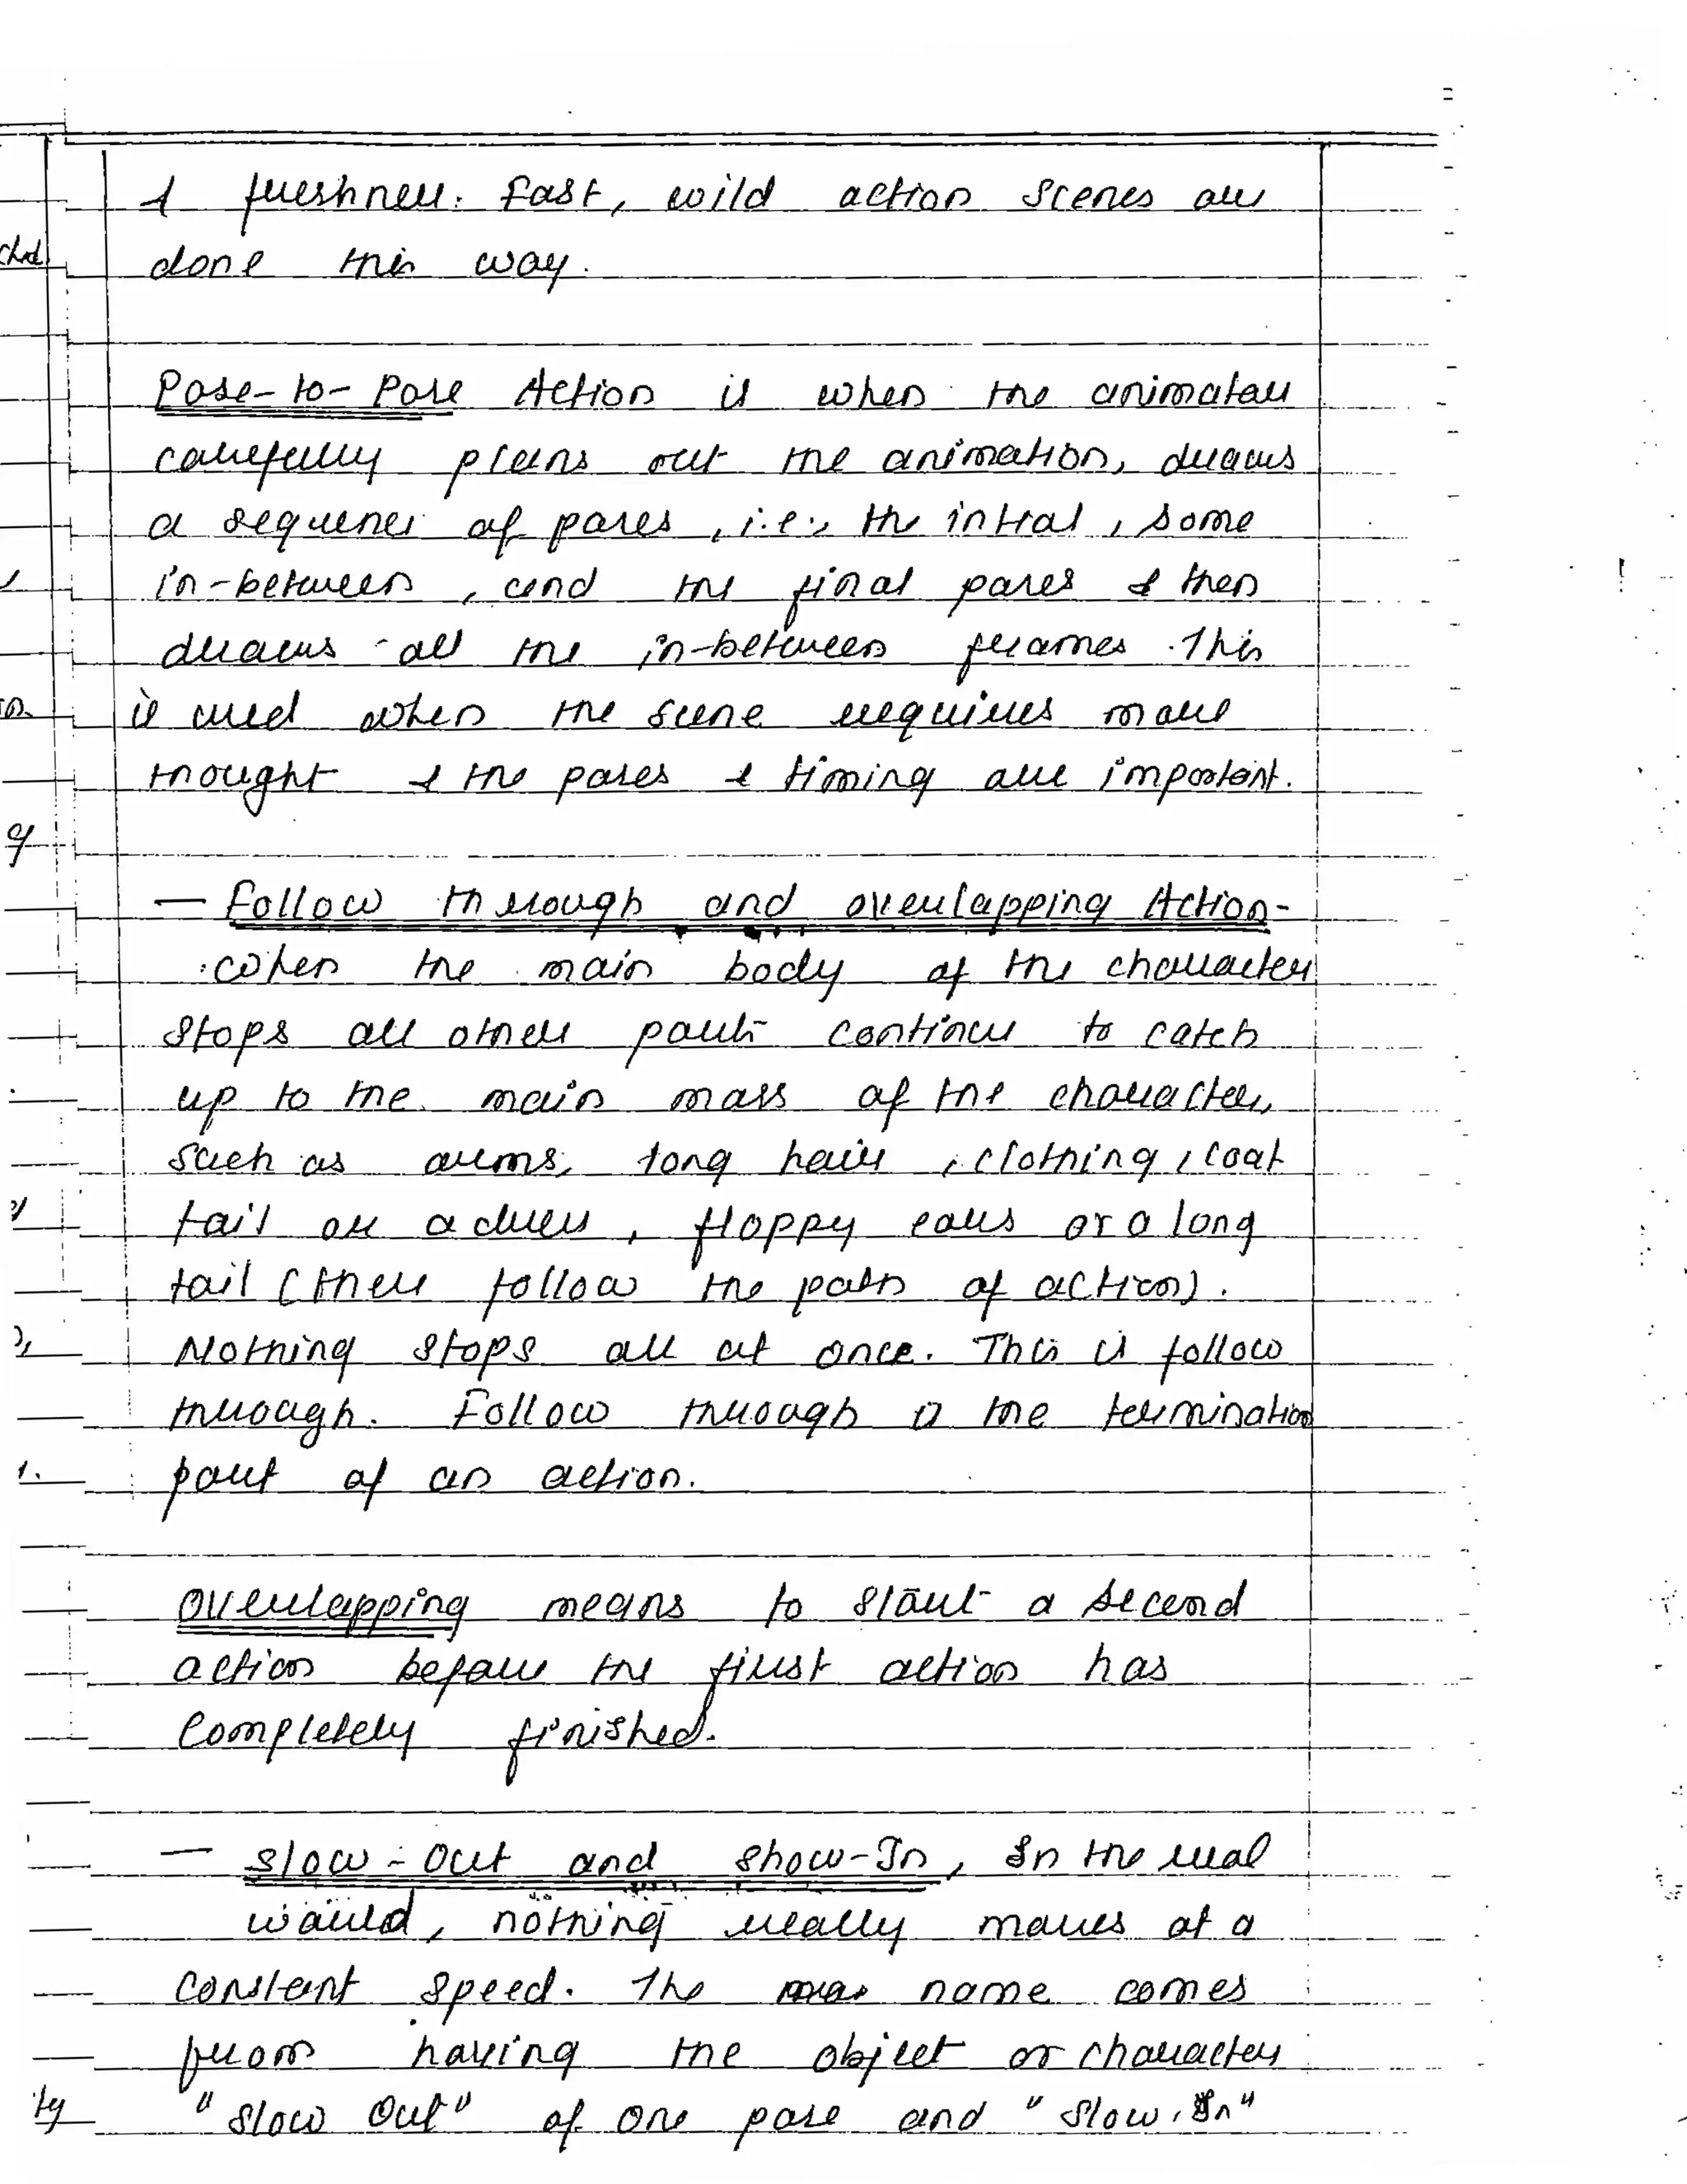 & freshness. Fast, wild action scenes are
done this way.
Pose-to-Pose Action is when the animator
carefully plans out the animation, draws
a sequence of poses, i.e., the intial, some
in-between, and the final poses & then
draws all the in-between frames. This
is used when the scene requires more
thought & the poses & timing are important.
- Follow through and overlapping Action-
when the main body of the character
stops all other parts continue to catch
up to the main mass of the character,
such as arms, long hair, clothing, coat
tail or a dress, floppy ears or a long
tail (these follow the path of action).
Nothing stops all at once. This is follow
through. Follow through is the termination
part of an action.
Overlapping means to start a second
action before the first action has
completely finished.
- Slow-Out and Show-In, In the real
world, nothing really moves at a
constant speed. The name comes
from having the object or character
"Slow Out" of one pose and "Slow, In"